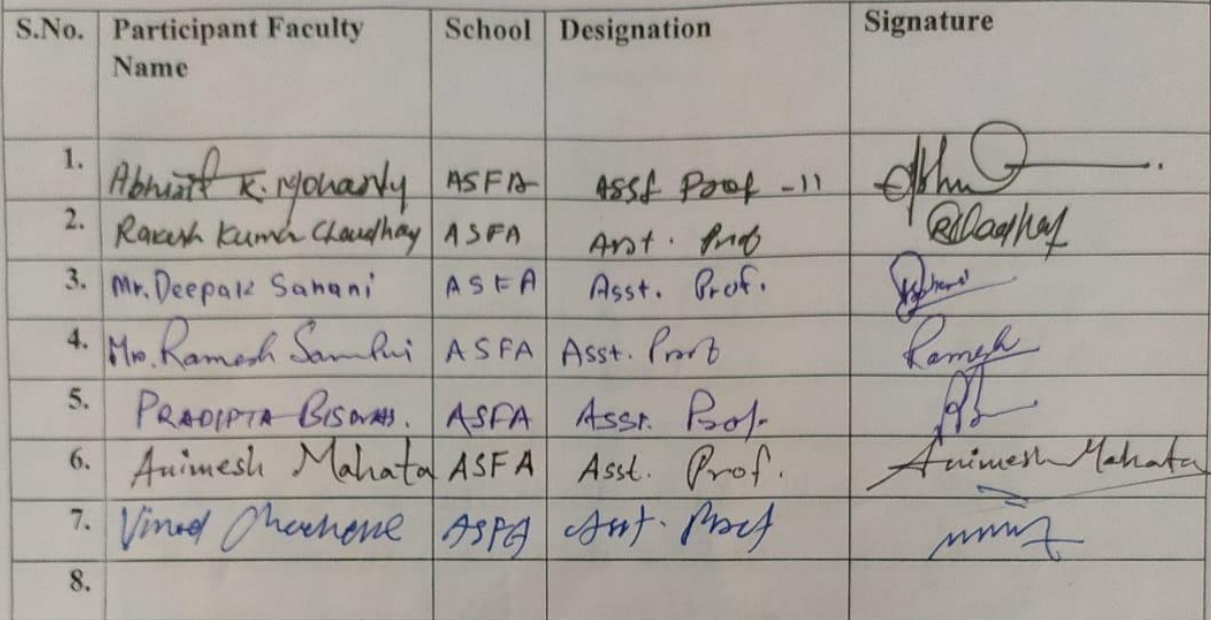 S.No. Participant Faculty Name School Designation Signature
1. Abhijit K. Mohanty ASFA Asst Prof -11
2. Rakesh Kumar Choudhay ASFA Asst. Prof
3. Mr. Deepak Sahani ASFA Asst. Prof.
4. Mr. Ramesh ASFA Asst. Prof Ramesh
5. PRADIPTA BISWAS. ASFA Asst. Prof.
6. Animesh Mahata ASFA Asst. Prof. Animesh Mahata
7. Vinod ASFA Asst. Prof
8.